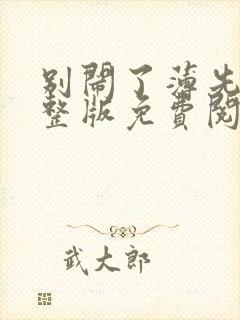 別鬧了薄先
整版免費閱
武大郎